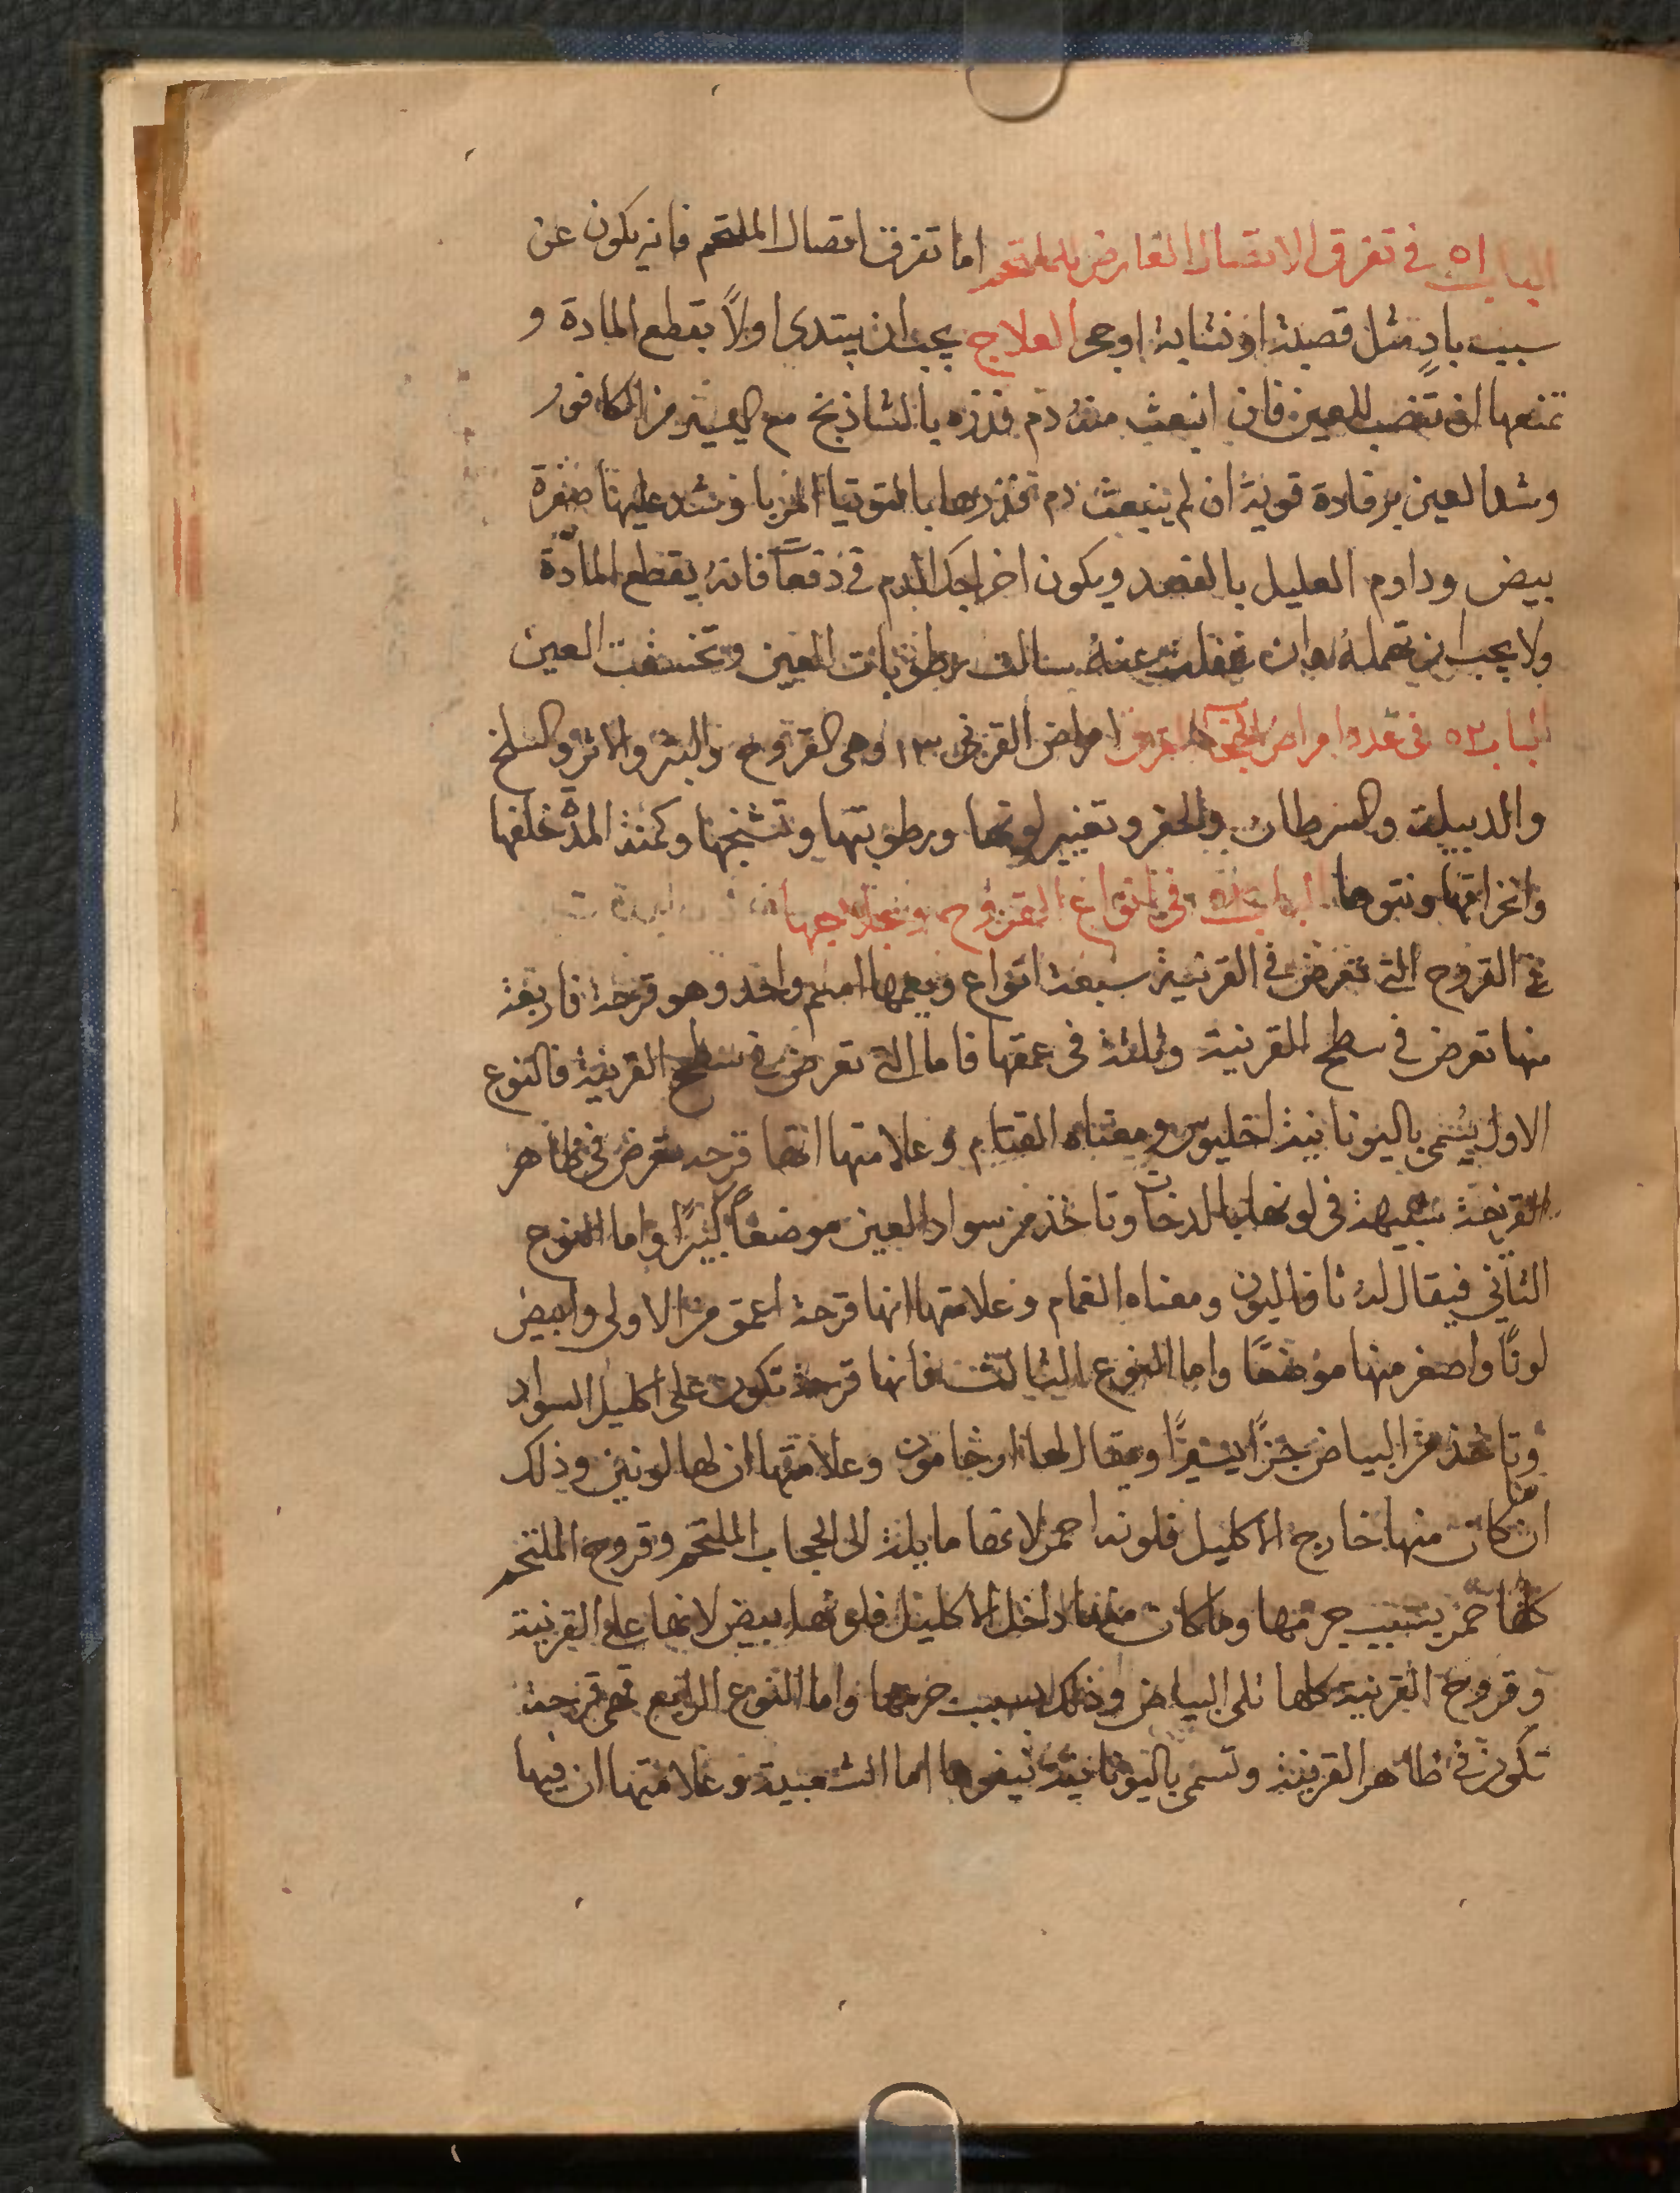 الباب ٥١ في تفرق الاتصال العارض للملتحم اما تفرق اتصال الملتحم فانه يكون عن
سبب بادٍ مثل قصبة او نشابة او حجر العلاج يجب ان يبتدى اولاً بقطع المادة و
تمنعها ان تنصب للعين فان انبعث منه دم فذره بالشاذنج مع اليسير من الكافور
وشد العين برفادة قوية ان لم ينبعث دم فذرها بالتوتيا المربا وشد عليها صفرة
بيض وداوم العليل بالفصد ويكون اخراجك الدم في دفعاً فانه يقطع المادّة
ولا يجب ان تهمله وان غفلت عنه سالت رطوبات العين وتخسفت العين
الباب ٥٣ في عدد امراض الحجاب القرني امراض القرني ١٣ وهي القروح والبثر والاثر والسلخ
والدبيلة والسرطان والحفر وتغيير لونها ورطوبتها وتشنجها وكمنة المدّة خلفها
وانخراقها ونتوها الباب في انواع القروح وعلاجها
في القروح التي تعرض في القرنية سبعة انواع ويعمها اسم واحد وهو قرحة فاربعة
منها تعرض في سطح القرنية وثلثة في عمقها فاما التي تعرض في سطح القرنية فالنوع
الاول يُسَمى باليونانية اخليوس ومعناه القتام وعلامتها انها قرحه تعرض في ظاهر
القرنية شبيهة في لونها بالدخان وتاخذ من سواد العين موضعاً كثيرًا واما النوع
الثاني فيقال له نافاليون ومعناه الغمام وعلامتها انها قرحة اعمق من الاولى وابيض
لونًا واصغر منها موضعًا واما النوع الثالث فانها قرحة تكون على اكليل السواد
وتاخذ من البياض جزًا يسيرًا ويقال لها ارجامون وعلامتها ان لها لونين وذلك
ان ما كان منها خارج الاكليل فلونه احمر لانها مايلة الى الحجاب الملتحم وقروح الملتحم
كلها حمر بسبب جرمها وما كان منها داخل الاكليل فلونها ابيض لانها على القرنية
وقروح القرنية كلها تلى البياض وذلك بسبب جرمها واما النوع الرابع فهى قرحة
تكون في ظاهر القرنية وتسمى باليونانية نيفوما اما الشعبية وعلامتها ان فيها